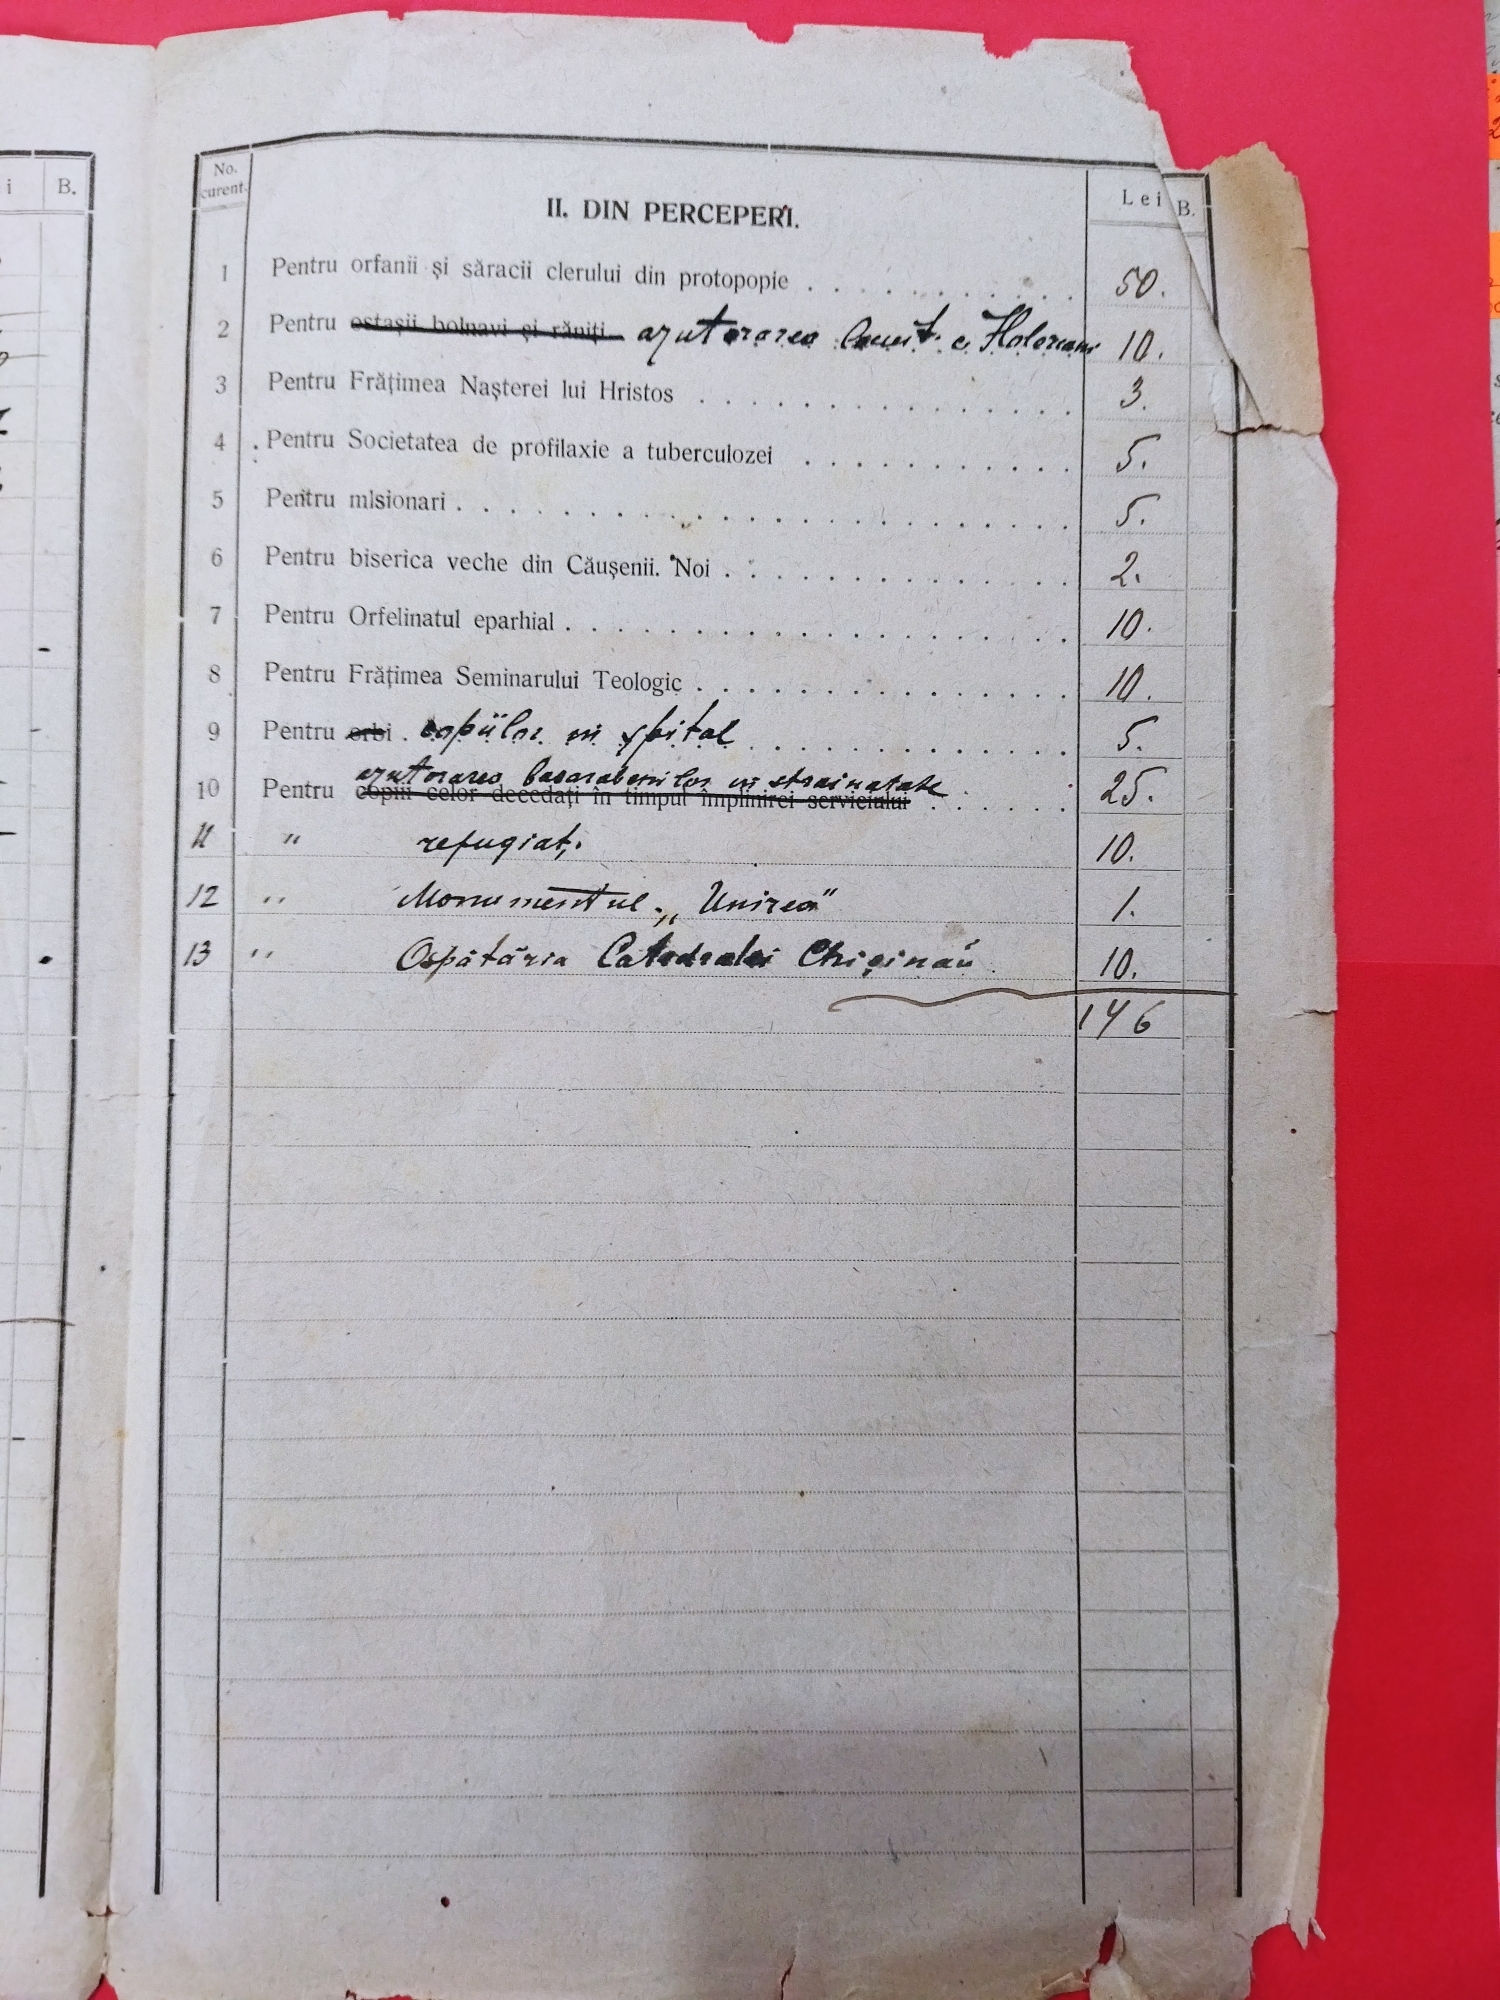 i B.
No. curent.
II. DIN PERCEPERI.
Lei B.
1 Pentru orfanii și săracii clerului din protopopie . . . . . . . . . . . 50.
2 Pentru ostașii bolnavi și răniți ajutorarea c. 10.
3 Pentru Frățimea Nașterei lui Hristos . . . . . . . . . . . . . . . 3.
4 Pentru Societatea de profilaxie a tuberculozei . . . . . . . . . . . 5.
5 Pentru misionari . . . . . . . . . . . . . . . . . . . . . . . . 5.
6 Pentru biserica veche din Căușenii. Noi . . . . . . . . . . . . . . 2.
7 Pentru Orfelinatul eparhial . . . . . . . . . . . . . . . . . . . . 10.
8 Pentru Frățimea Seminarului Teologic . . . . . . . . . . . . . . . 10.
9 Pentru orbi . copiilor in spital . . . . . . . . . . . . . 5.
ajutorarea basarabenilor in strainatate
10 Pentru copiii celor decedați în timpul împlinirei serviciului . . . . . . 25.
11 " refugiați 10.
12 " Monumentul „Unirea" 1.
13 " Ospătăria Catedralei Chișinău 10.
146